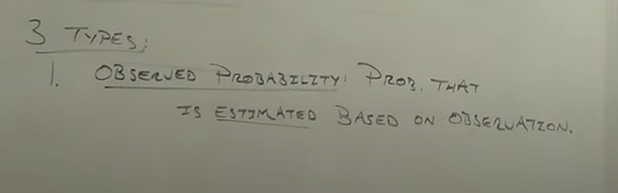 3 TYPES:
1. OBSERVED PROBABILITY: PROB. THAT
IS ESTIMATED BASED ON OBSERVATION.